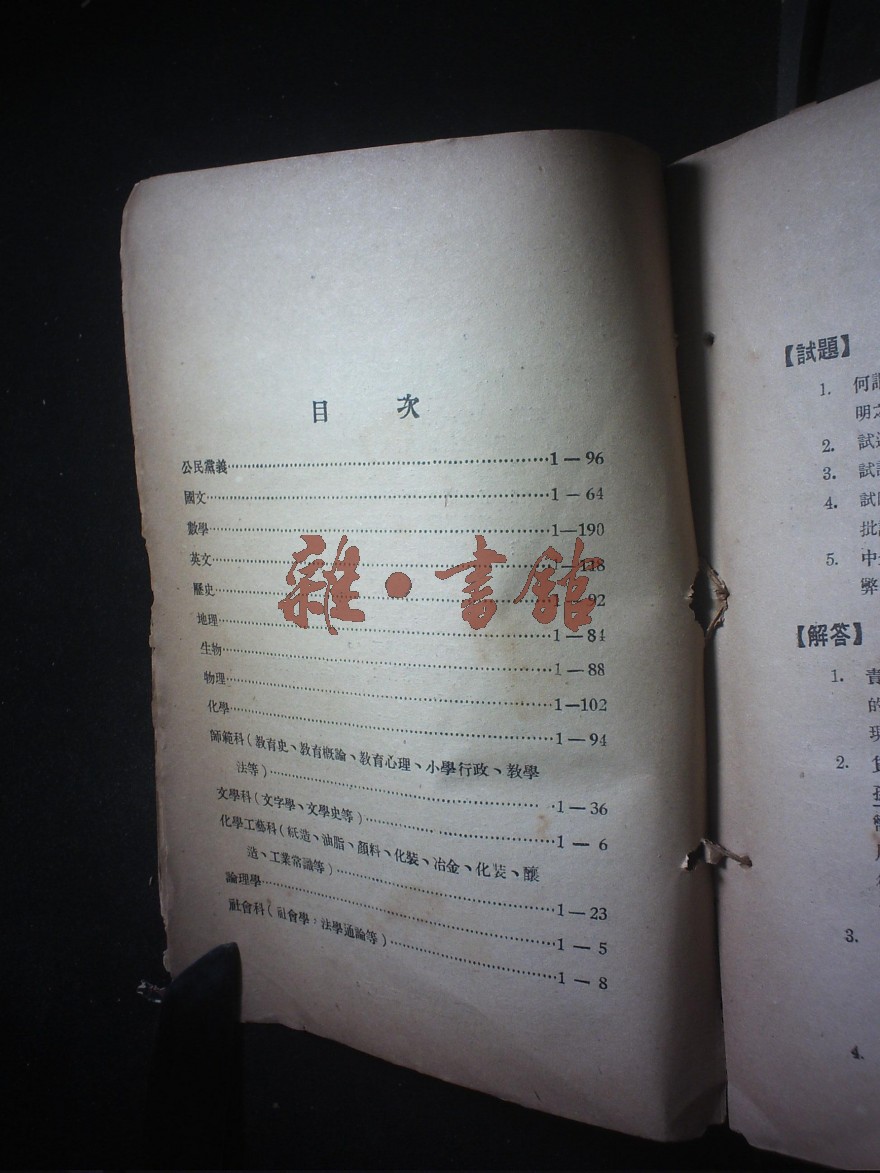 目 次
公民黨義……1—96
國文……1—64
數學……1—190
英文……1—118
歷史……1—92
地理……1—84
生物……1—88
物理……1—102
化學……1—94
師範科(教育史、教育概論、教育心理、小學行政、教學
法等)……1—36
文學科(文字學、文學史等)……1—6
化學工藝科(紙造、油脂、顏料、化裝、冶金、化裝、釀
造、工業常識等)……1—23
論理學……1—5
社會科(社會學，法學通論等)……1—8
雜·書館
【試題】
1. 何
明
2. 試
3. 試
4. 試
批
5. 中
弊
【解答】
1.
的
現
2.
3.
4.